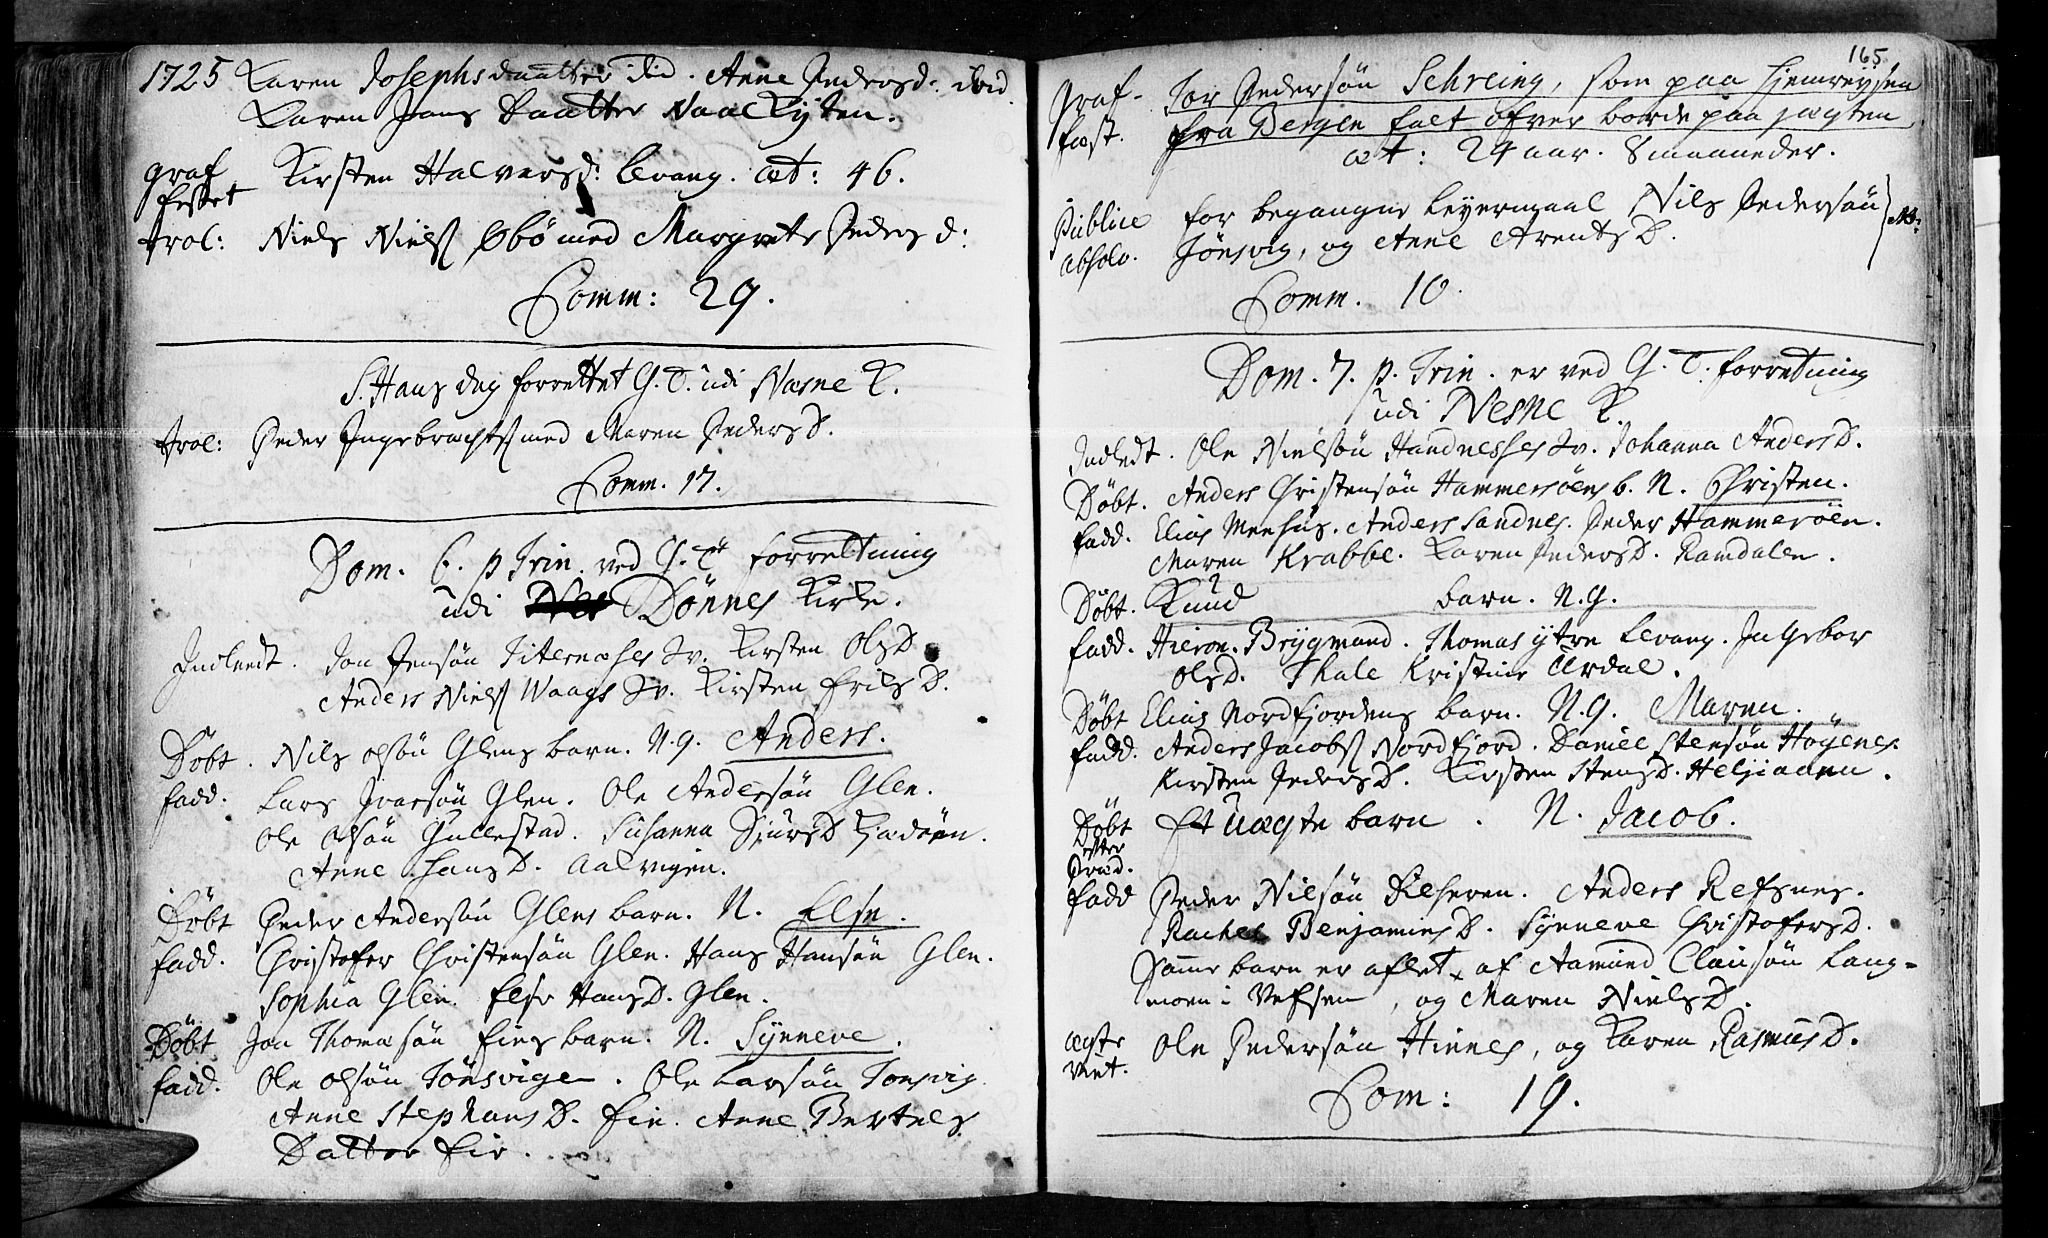 1725 Karen Josephsdaatter ibid. Anne Pedersd: ibid.
Karen Jans Daatter Naalkyten.
graf festet Kirsten Halvarsd: Levang. æt: 46.
trol: Niels Niels. med Margrete Peders d:
Comm: 29.
S. Hans dag forrettet G. T. udi Næsne K.
trol: Peder Ingebrachts. med Maren PedersD.
Comm. 17.
Dom. 6. p Trin. ved G. T. forretning
udi Dönnes Kirke.
Indleedt. Jon Jensön Titernæses Qv. Kirsten OlsD
Anders Niels. Waags Qv. Kirsten ErilsD.
Döbt. Nils olsön Glens barn. N. g. Anders.
fadd. Lars Ivarsön Glen. Ole Andersön Glen.
Ole olsön Gullestad. Susanna SiursD
Anne HansD. Aalvigen.
Döbt Peder Andersön Glens barn. N. Else.
fadd. Christofer Christensön Glen. Hans Hansön Glen.
Sophia Glen. Else HansD. Glen.
Döbt Jon Thomæsön Fins barn. N. Synneve.
fadd. Ole olsön Tönsvigen. Ole Larsön Tonsvig
Anne StephansD. Fin. Anne Bertels
Datter Fin.
165.
Graf-fæst. Tor Pedersön Schreing, som paa Hjemreysen
fra Bergen falt ofver borde paa jægten
æt: 29 aar. 8 maaneder.
Publice absolv. for begangne leyermaal Nils Pedersön
Tönsvig, og Anne ArentsD. NB:
Comm. 10.
Dom. 7. p. Trin. er ved G. T. forretning
udi Nesne K.
Indledt. Ole Nielsön Handnesses Qv. Johanna AndersD.
Döbt. Anders Christensön Hammersöens b. N. Christen.
fadd. Elias Meehus. Anders Sandnes. Peder Hammeröen.
Maren Krabbe. Karen PedersD. Ramdalen.
Döbt. Knud barn. N. g.
fadd. Hieron. Brygmand. Thomas ytre Levang. Ingebor
OlsD. Thale Kristine Urdal.
Döbt Elias Nordfjordens barn. N. g. Maren.
fadd. Anders Jacobs. Nordfjord. Daniel Stensön Höyenes.
Kirsten PedersD. Kirsten StensD. Helgiaaen.
Döbt efter Præd. Et uægte barn. N. Jacob.
fadd Peder Nilsön. Anders Refsnes.
Rachel BenjaminsD. Synneve ChristofersD.
Samme barn er aflet af Aamund Clausön Lang-
moen i Vefsen, og Maren NielsD.
ægte viet. Ole Pedersön Hinnes, og Karen RasmusD.
Com: 19.